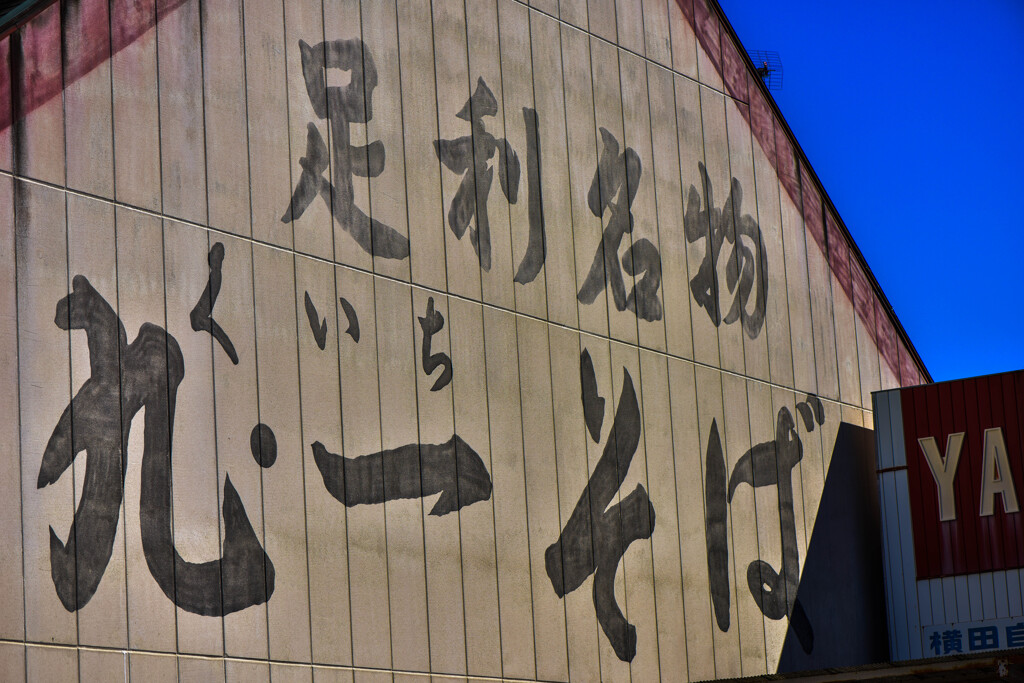 足利名物
くいち
九一そば
YA
横田自